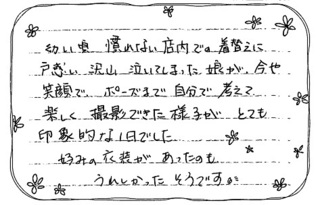 幼い頃 慣れない店内での着替えに
戸惑い 沢山 泣いてしまった娘が、今や
笑顔で、ポーズまで自分で考えて
楽しく 撮影できた様子が とても
印象的な1日でした
好みの衣装が あったのも
うれしかった そうです